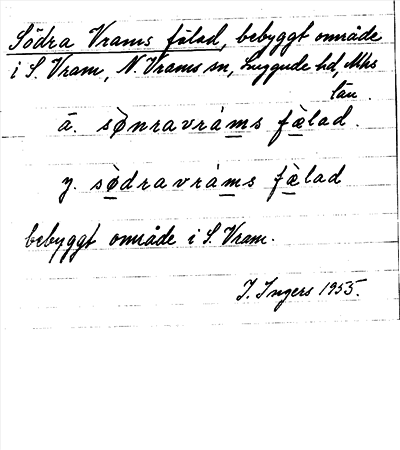 Södra Vrams fälad, bebyggt område
i S. Vram, N. Vrams sn, Luggude hd, Mhs
län.
ä. sønravràms fælad.
y. sødravràms fælad
bebyggt område i S. Vram.
I. Ingers 1955.